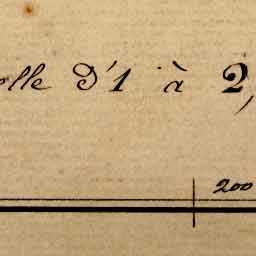 elle d'1 à 2,
200